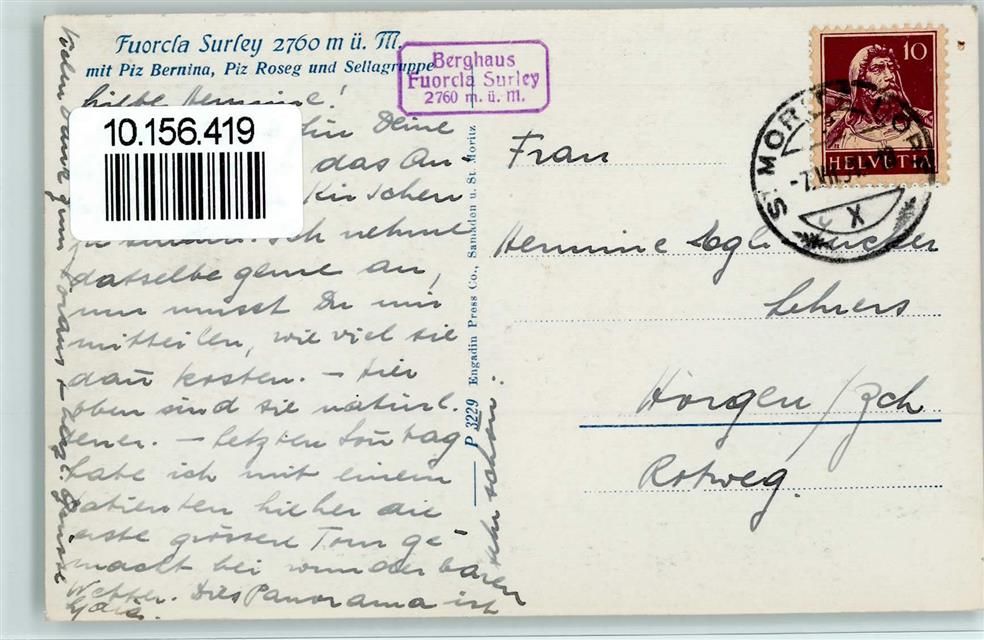 Fuorcla Surley 2760 m ü. M.
mit Piz Bernina, Piz Roseg und Sellagruppe
Berghaus
Fuorcla Surley
2760 m. ü. M.
10
HELVETIA
ST. MORITZ DORF
X
10.156.419
P 3229 Engadin Press Co., Samaden u. St. Moritz
Liebe Hermine!
Deine
das An-
Kirschen
zu senden. Ich nehme
dasselbe gerne an,
nur musst Du mir
mitteilen, wie viel sie
dañ kosten. – Hier
oben sind sie natürl.
teuer. – Letzten Soñtag
habe ich mit einem
Patienten hieher die
erste grössere Tour ge-
macht bei wunderbaren
Wetter. Dies Panorama ist
sehr schön.
zum Voraus + herzl. Grüsse
Frau
Hermine
Lehrers
Horgen / Zch
Rotweg.